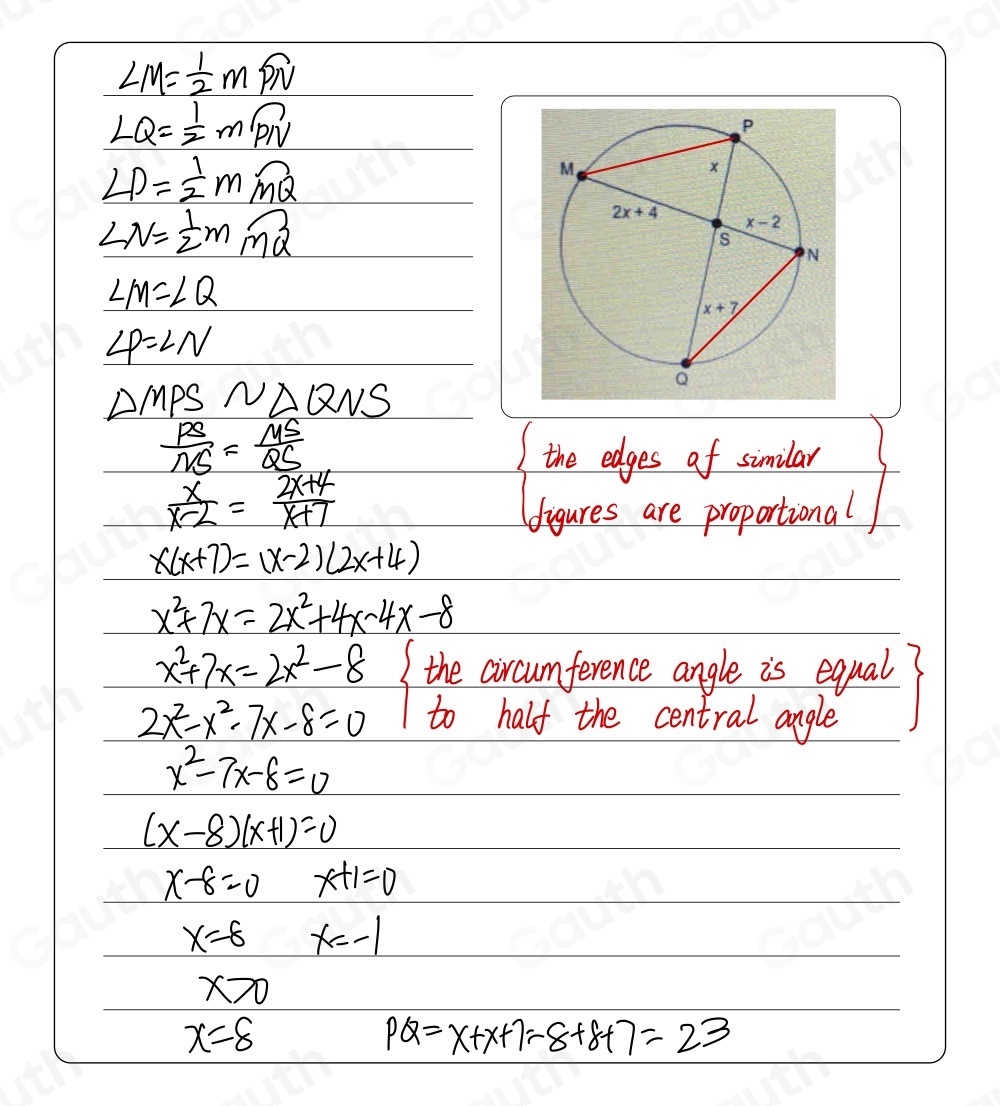 ∠M=½m PN
∠Q=½m PN
∠P=½m MQ
∠N=½m MQ
∠M=∠Q
∠P=∠N
△MPS ~ △QNS
PS/NS = MS/QS
x/x-2 = 2x+4/x+7
x(x+7)=(x-2)(2x+4)
x²+7x=2x²+4x-4x-8
x²+7x=2x²-8
2x²-x²-7x-8=0
x²-7x-8=0
(x-8)(x+1)=0
x-8=0 x+1=0
x=8 x=-1
x>0
x=8 PQ=x+x+7=8+8+7=23
P
M
x
2x+4
x-2
S
N
x+7
Q
{the edges of similar
figures are proportional}
{the circumference angle is equal
to half the central angle}
Gauth